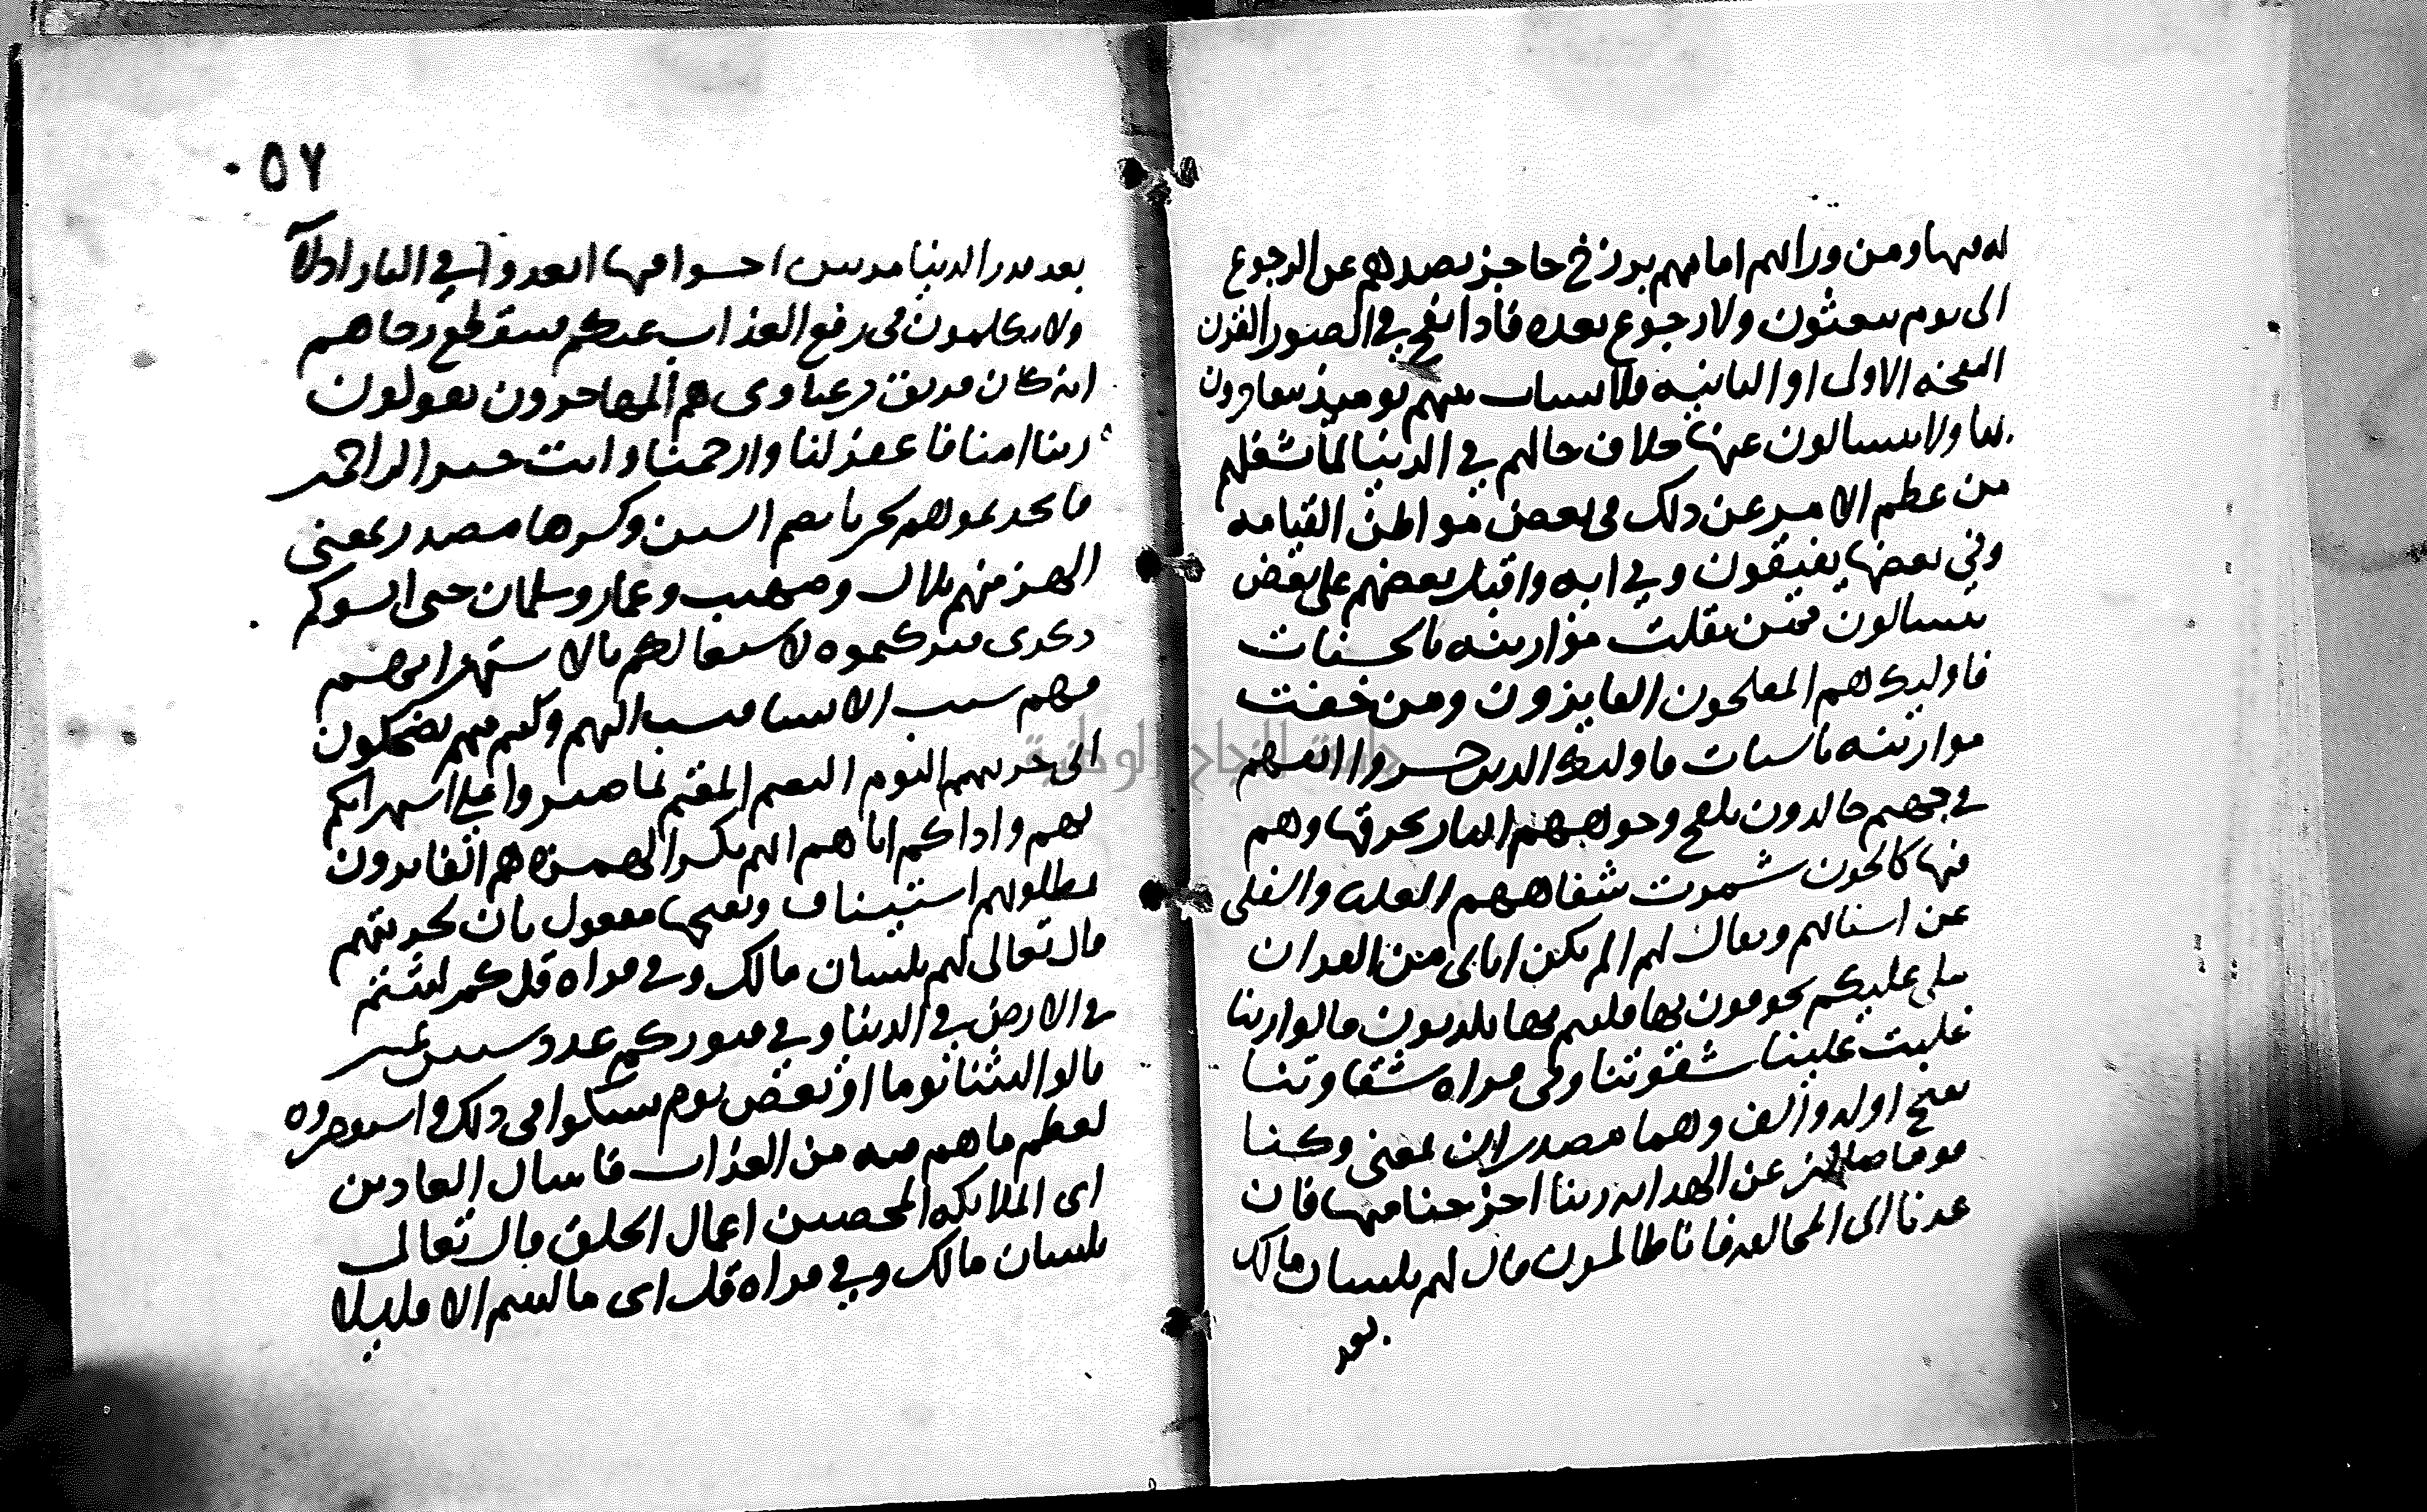 له فيها ومن ورائهم امامهم برزخ حاجز يصدهم عن الرجوع
الى يوم يبعثون ولا رجوع بعده فاذا نفخ في الصور القرن
النفخة الاولى او الثانية فلا انساب بينهم يوميذ يتفاخرون
بها ولا يتسالون عنها خلاف حالهم في الدنيا لما شغلهم
من عظم الامر عن ذلك في بعض مواطن القيامه
وفي بعضها يفيقون وفي ايه واقبل بعضهم على بعض
يتسالون فمن ثقلت موازينه بالحسنات
فاوليك هم المفلحون الفايزون ومن خفت
موازينه بالسيات فاوليك الذين خسروا انفسهم
في جهنم خالدون تلفح وجوههم النار تحرقها وهم
فيها كالحون شمرت شفاههم العليا والسفلى
عن اسنانهم ويقال لهم الم تكن اياتي من القران
تتلى عليكم تخوفون بها فكنتم بها تكذبون قالوا ربنا
غلبت علينا شقوتنا وفي قراه شقاوتنا
بفتح اوله والف وهما مصدران بمعنى وكنا
قوما ضالين عن الهدايه ربنا اخرجنا منها فان
عدنا الى المخالفه فانا ظالمون قال لهم بلسان مالك
بعد
٠٥٧
بعد قدر الدنيا مرتين اخسوا فيها ابعدوا في النار اذلا
ولا تكلمون في رفع العذاب عنكم فينقطع رجاهم
انه كان فريق من عبادي هم المهاجرون يقولون
ربنا امنا فاغفر لنا وارحمنا وانت خير الراحمين
فاتخذتموهم سخريا بضم السين وكسرها مصدر بمعنى
الهزء منهم بلال وصهيب وعمار وسلمان حتى انسوكم
ذكري فتركتموه لاشتغالكم بالاستهزا بهم
فهم سبب الانسا فنسب اليهم وكنتم منهم تضحكون
اني جزيتهم اليوم النعيم المقيم بما صبروا على استهزائكم
بهم واذاكم اياهم انهم بكسر الهمزه هم الفايزون
بمطلوبهم استيناف وبفتحها مفعول ثان لجزيتهم
قال تعالى لهم بلسان مالك وفي قراه قل كم لبثتم
في الارض في الدنيا وفي قبوركم عدد سنين تمييز
قالوا لبثنا يوما او بعض يوم شكوا في ذلك واستقصروه
لعظم ما هم فيه من العذاب فاسال العادين
اى الملائكه المحصين اعمال الخلق قال تعالى
بلسان مالك وفي قراه قل اى ما لبثتم الا قليلا
جامعة النجاح الوطنية